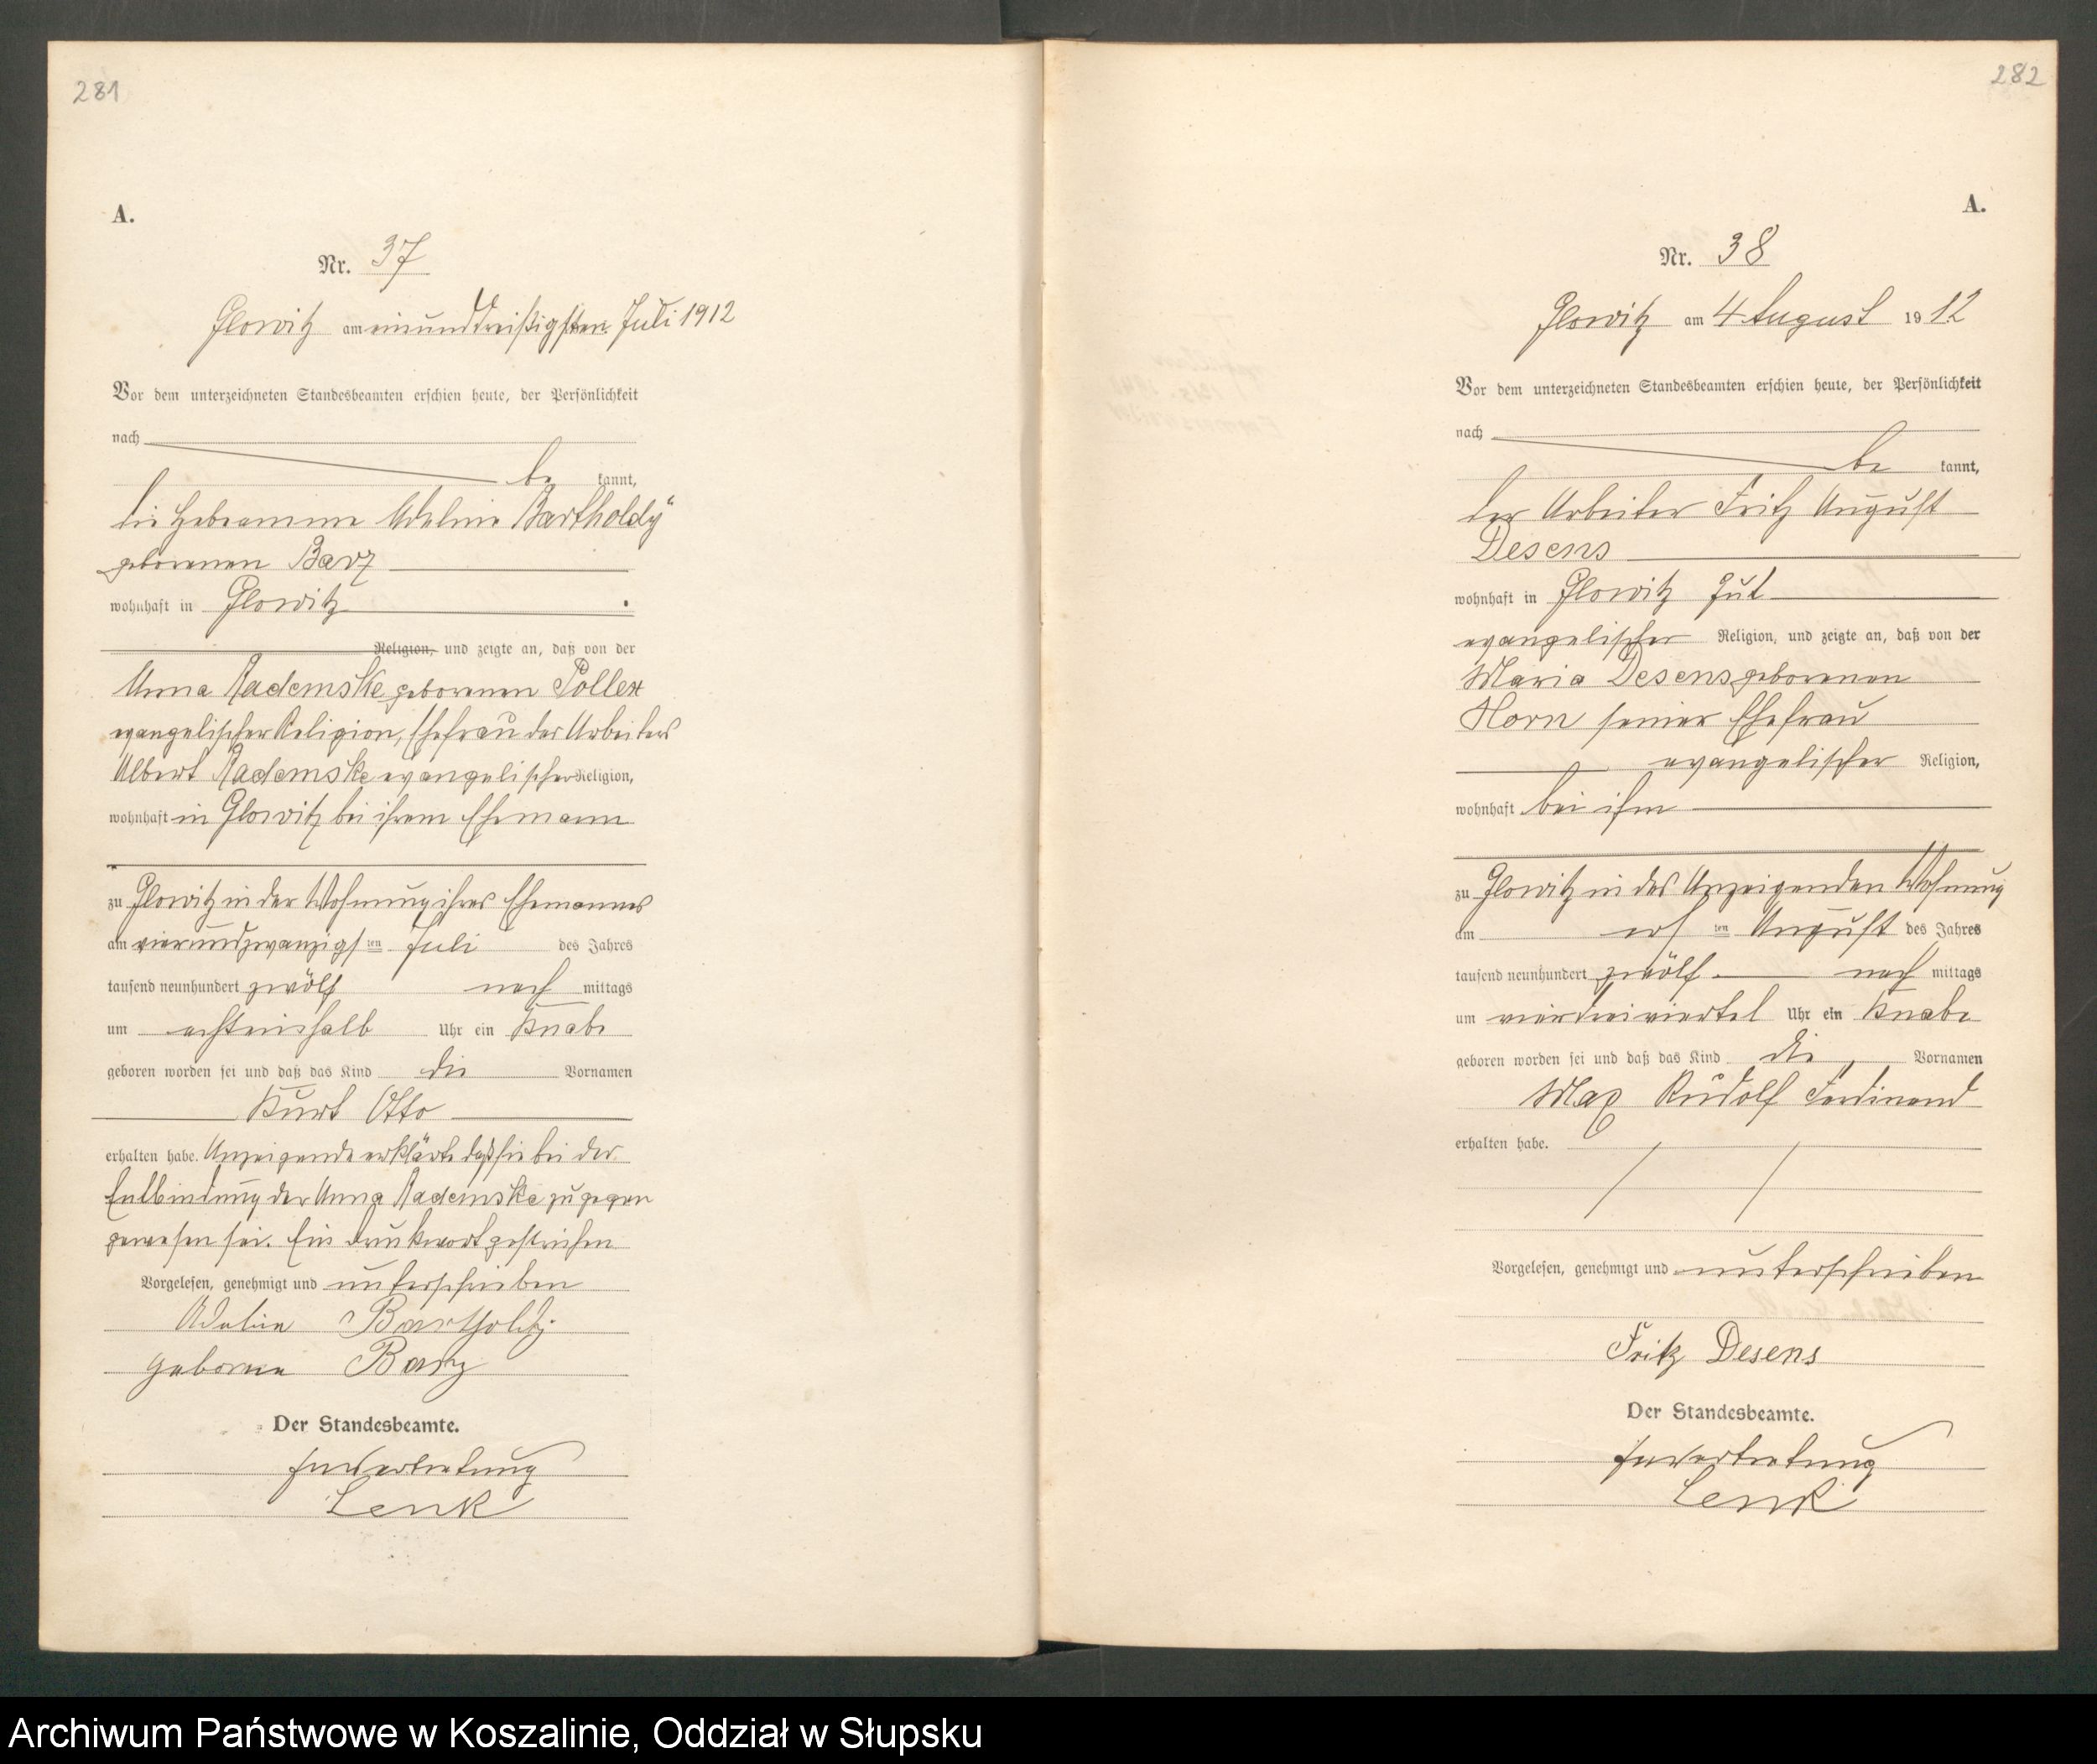 281
A.
Nr. 37
Glowitz am einunddreißigsten Juli 1912
Vor dem unterzeichneten Standesbeamten erschien heute, der Persönlichkeit
nach
be kannt,
die Hebeamme Adeline Bartholdy
geborenen Barz
wohnhaft in Glowitz
Religion, und zeigte an, daß von der
Anna Rademske geborenen Pollex
evangelischer Religion, Ehefrau des Arbeiters
Albert Rademske evangelischer Religion,
wohnhaft in Glowitz bei ihrem Ehemann
zu Glowitz in der Wohnung ihres Ehemannes
am vierundzwanzigs ten Juli des Jahres
tausend neunhundert zwölf nach mittags
um achteinhalb Uhr ein Knabe
geboren worden sei und daß das Kind die Vornamen
Kurt Otto
erhalten habe. Anzeigende erklärte daß sie bei der
Entbindung der Anna Rademske zugegen
gewesen sei. Ein Druckwort gestrichen
Vorgelesen, genehmigt und unterschrieben
Adeline Bartholdy
geborne Barz
Der Standesbeamte.
In Vertretung
Lenk
282
A.
Nr. 38
Glowitz am 4 August 1912
Vor dem unterzeichneten Standesbeamten erschien heute, der Persönlichkeit
nach
be kannt,
der Arbeiter Fritz August
Desens
wohnhaft in Glowitz Gut
evangelischer Religion, und zeigte an, daß von der
Maria Desens geborenen
Horn seiner Ehefrau
evangelischer Religion,
wohnhaft bei ihm
zu Glowitz in des Anzeigenden Wohnung
am ers ten August des Jahres
tausend neunhundert zwölf nach mittags
um vierdreiviertel Uhr ein Knabe
geboren worden sei und daß das Kind die Vornamen
Max Rudolf Ferdinand
erhalten habe.
Vorgelesen, genehmigt und unterschrieben
Fritz Desens
Der Standesbeamte.
In Vertretung
Lenk
Archiwum Państwowe w Koszalinie, Oddział w Słupsku